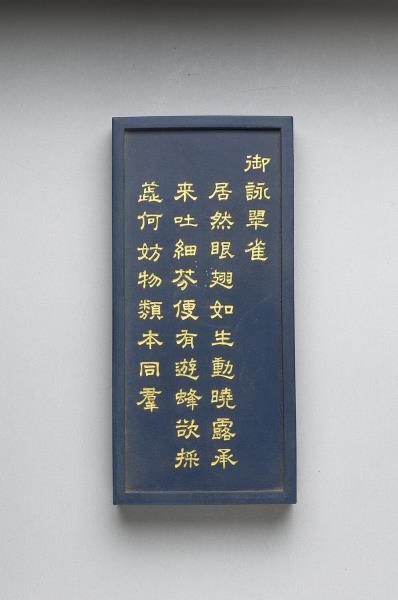 御詠翠雀
居然眼翅如生動曉露承
来吐細芬便有遊蜂欲採
蕋何妨物類本同羣